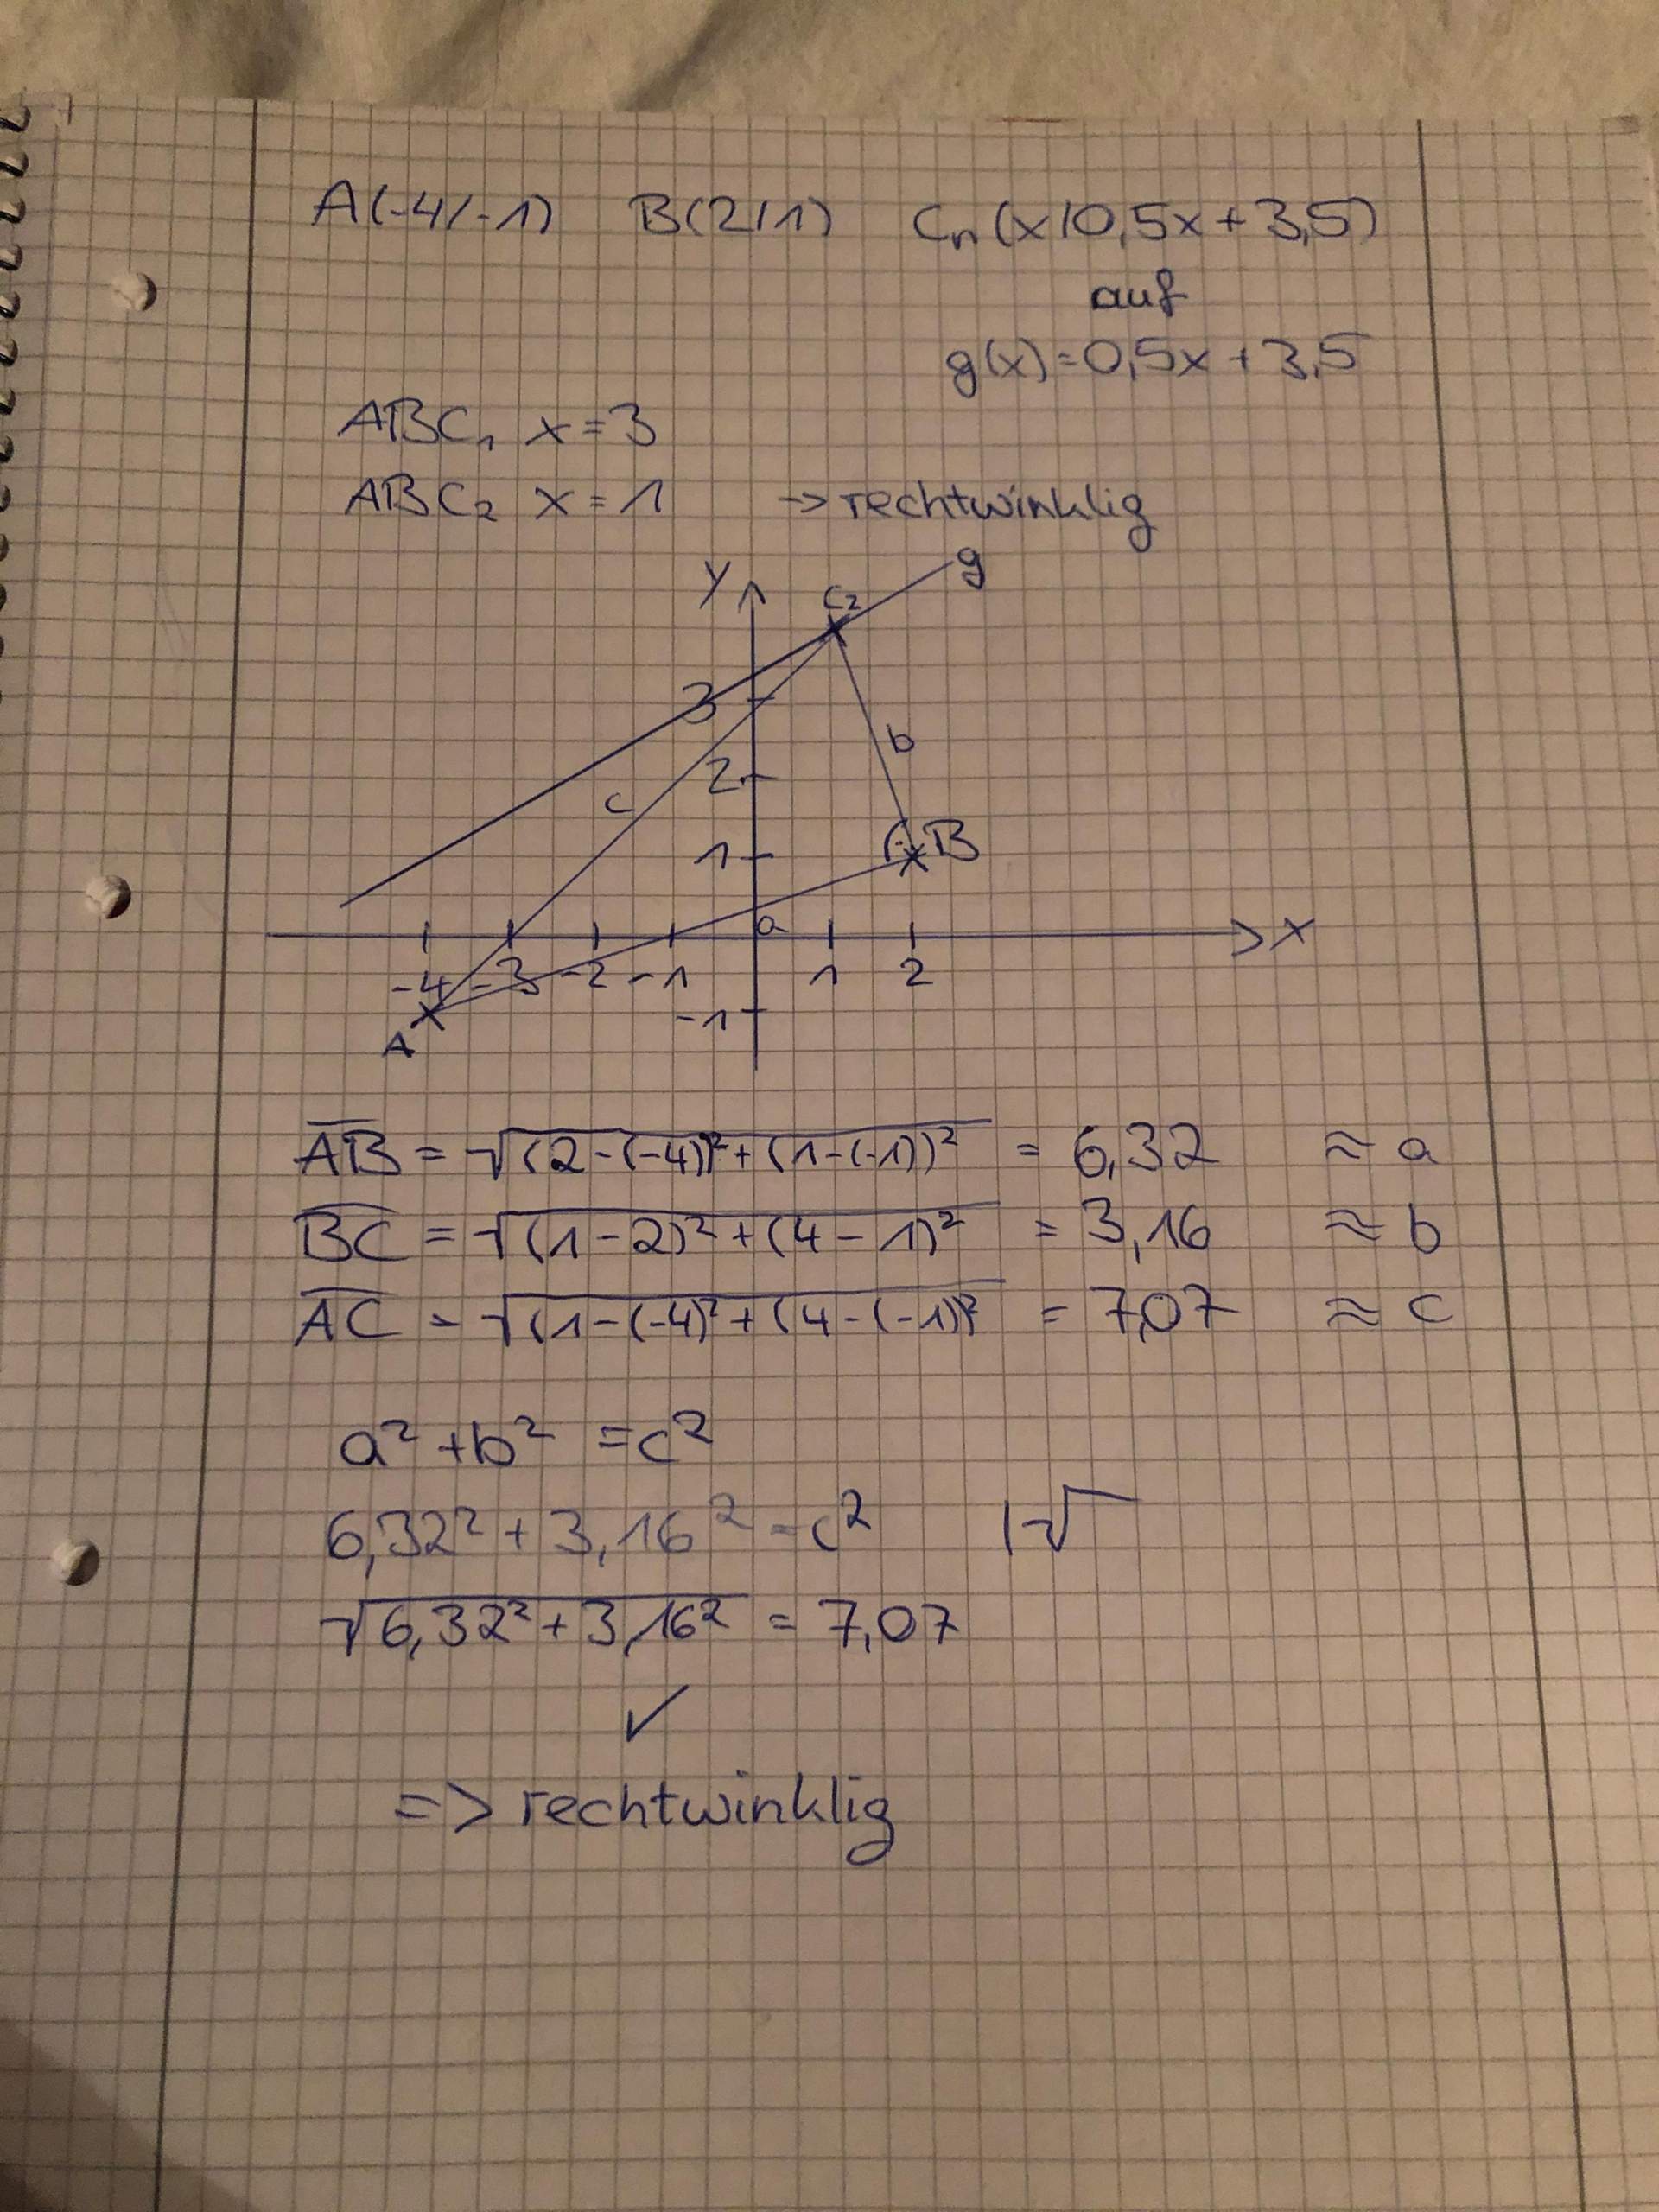 A(-4/-1) B(2/1) Cn(x/0,5x+3,5)
auf
g(x)=0,5x+3,5
ABC₁ x=3
ABC₂ x=1 → rechtwinklig
y
C₂
g
3
b
2
c
1
B
a
x
-4 -3 -2 -1 1 2
-1
A
AB = √(2-(-4))²+(1-(-1))² = 6,32 ≈ a
BC = √(1-2)²+(4-1)² = 3,16 ≈ b
AC = √(1-(-4)²+(4-(-1)² = 7,07 ≈ c
a²+b² = c²
6,32²+3,16² = c² |√
√6,32²+3,16² = 7,07
✓
=> rechtwinklig